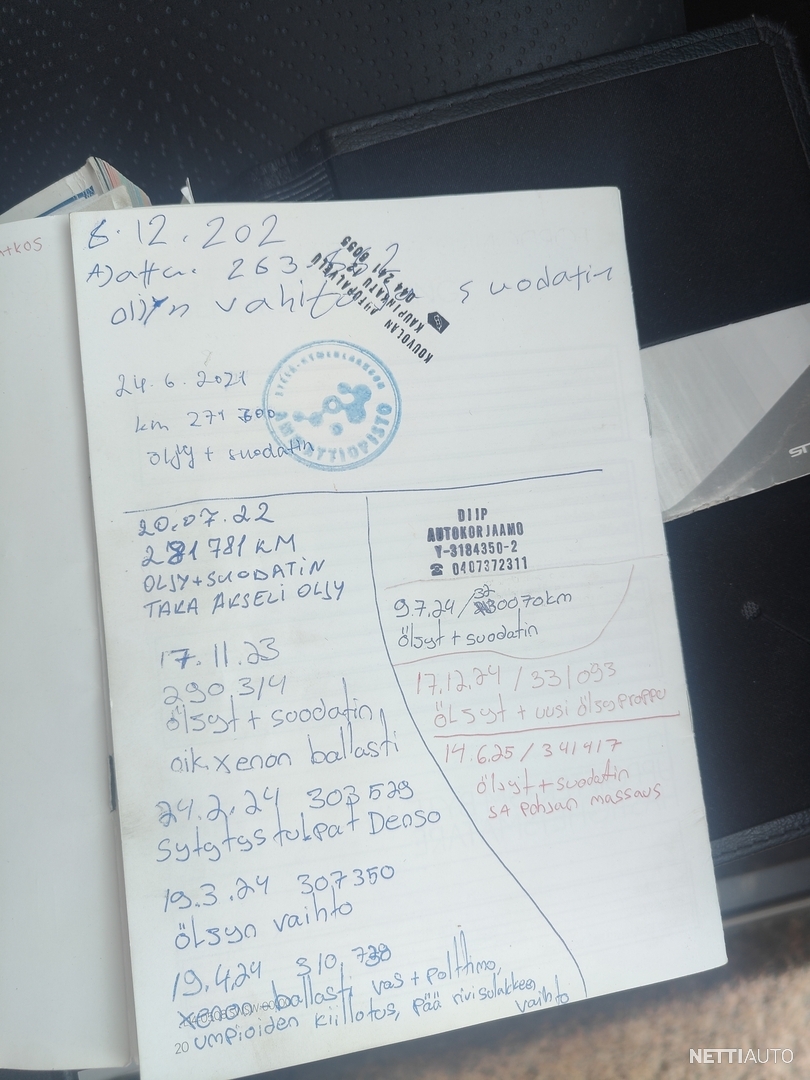 atkos
8.12.202
Ajettu. 263
öljyn vahito suodatin
KOUVOLAN AUTOPALVELU
KAUPINKATU
044 241 9055
24.6.2021
km 271 300
öljy + suodatin
AMMATTIOPISTO
20.07.22
281 781 KM
ÖLJY+SUODATIN
TAKA AKSELI ÖLJY
17.11.23
290 314
ölsyt + suodatin,
oik. xenon ballasti
24.2.24 303 529
Sytytystulpat Denso
19.3.24 307350
ölsyn vaihto
19.4.24 310,
xenon ballasti vas + polttimo,
umpioiden kiillotus, pää rivisulakkeen
vaihto
20
DIIP
AUTOKORJAAMO
Y-3184350-2
☎ 0407372311
9.7.24 / 32 0070km
ölsyt + suodatin
17.12.24 / 331093
ölsyt + uusi ölsyproppu
14.6.25 / 341417
ölsyt + suodatin
SA pohsan massaus
NETTIAUTO